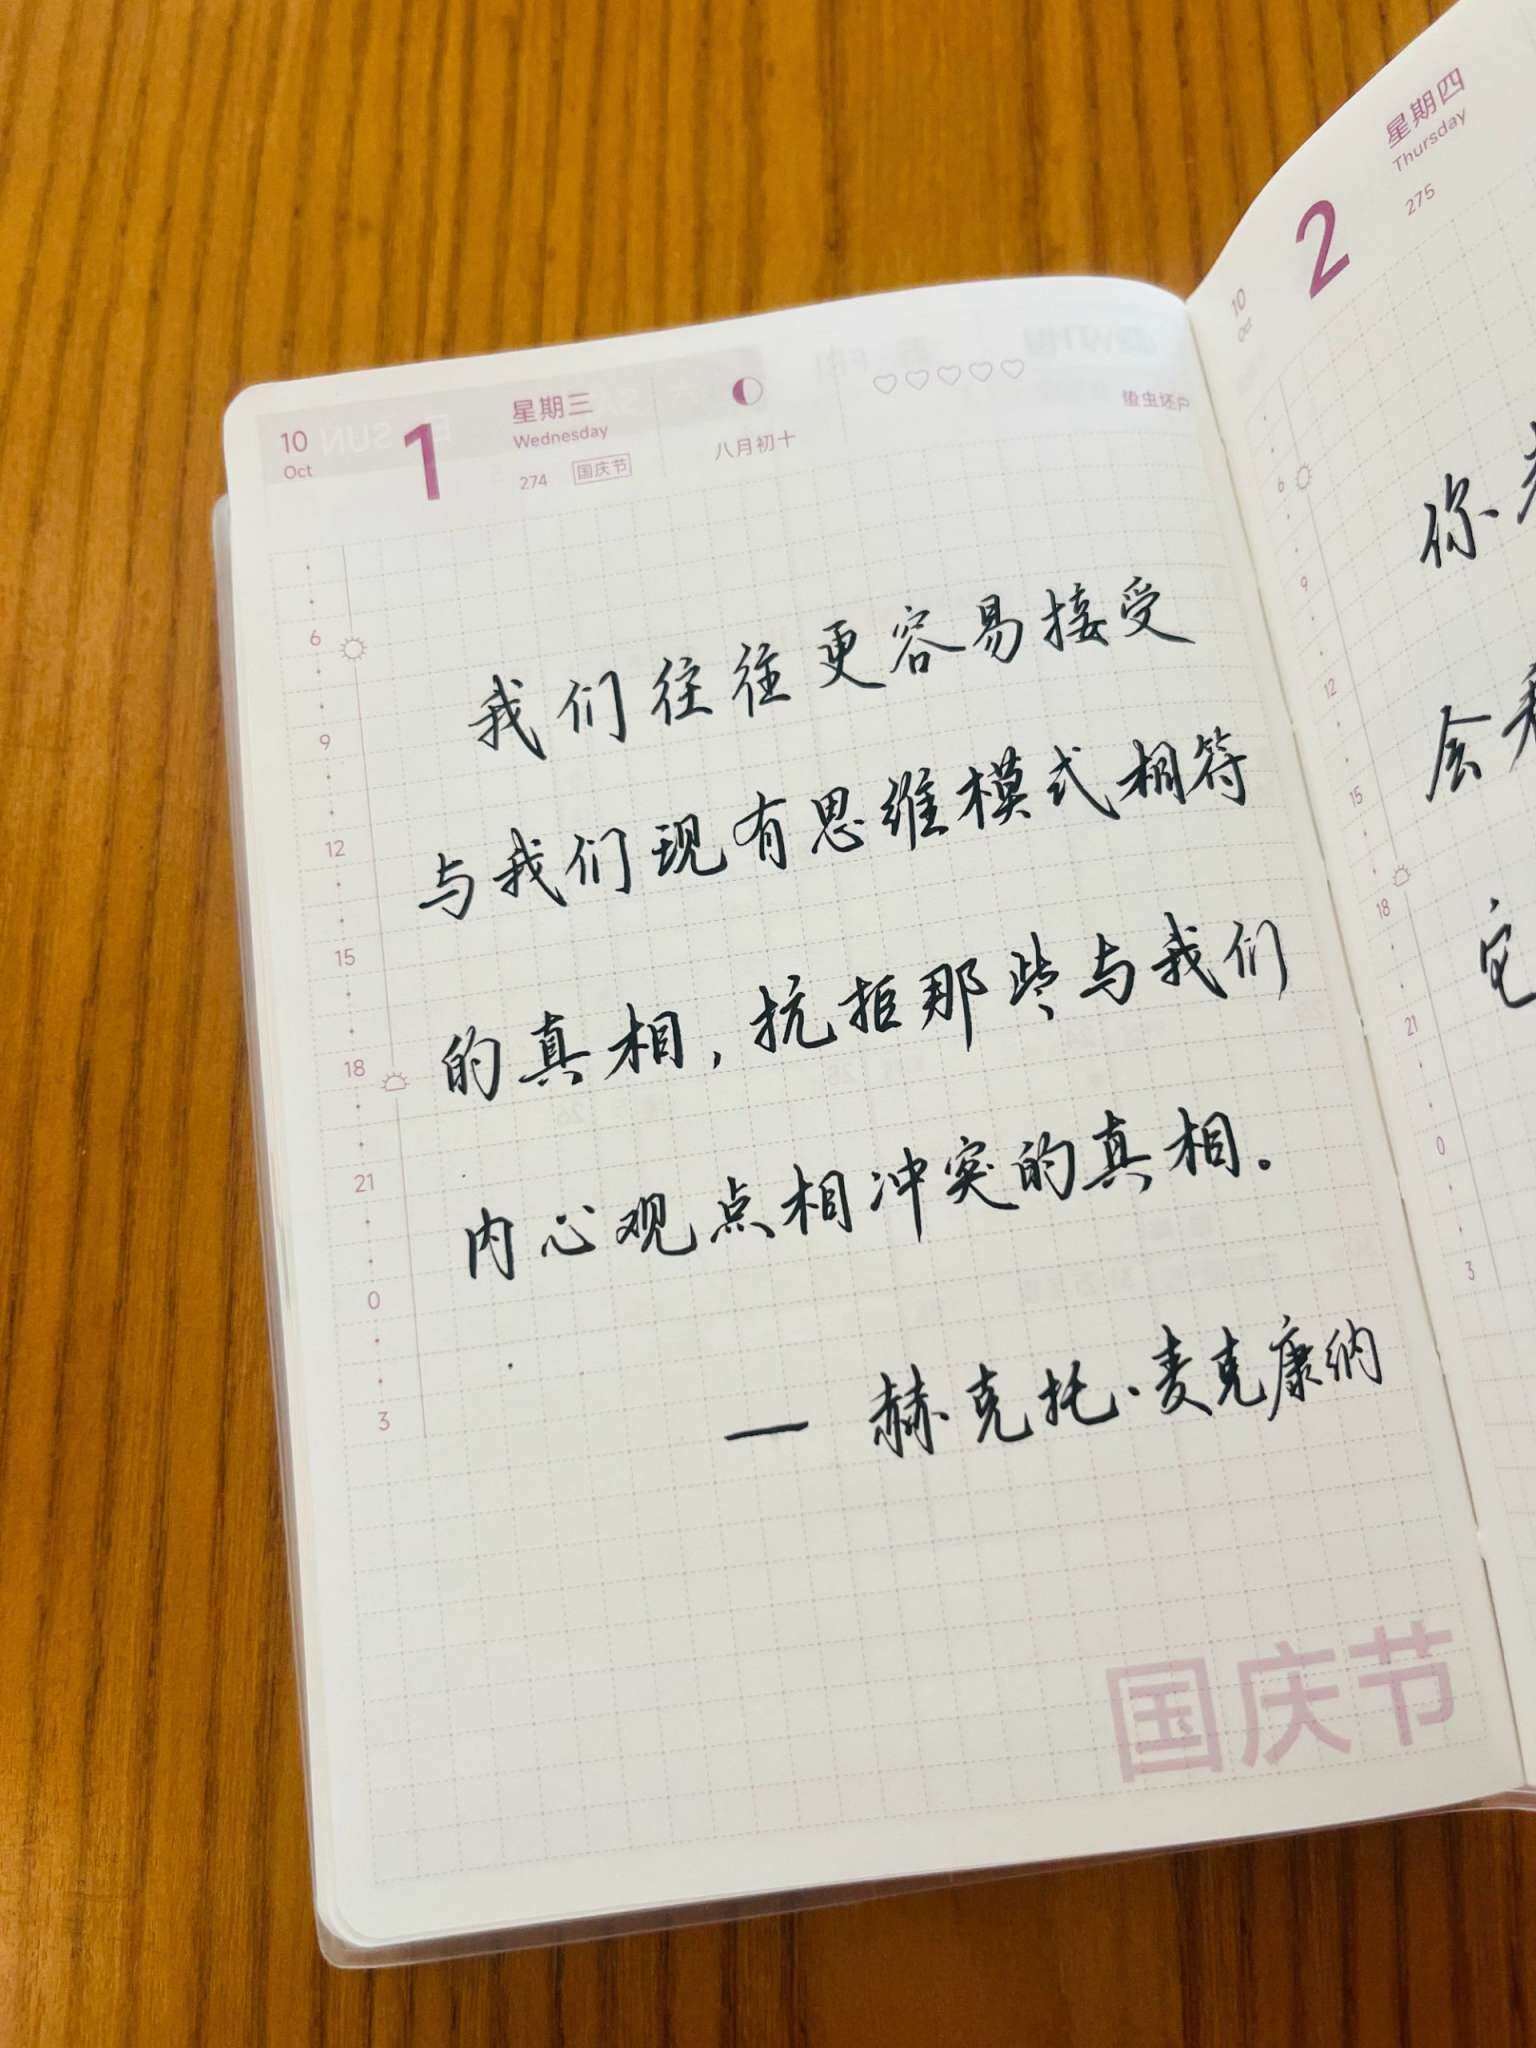 10
Oct
1
星期三
Wednesday
274 国庆节
八月初十
蛰虫坯户
6
9
12
15
18
21
0
3
我们往往更容易接受
与我们现有思维模式相符
的真相，抗拒那些与我们
内心观点相冲突的真相。
— 赫克托·麦克康纳
国庆节
10
Oct
2
星期四
Thursday
275
6
9
12
15
18
21
0
3
你
会
它